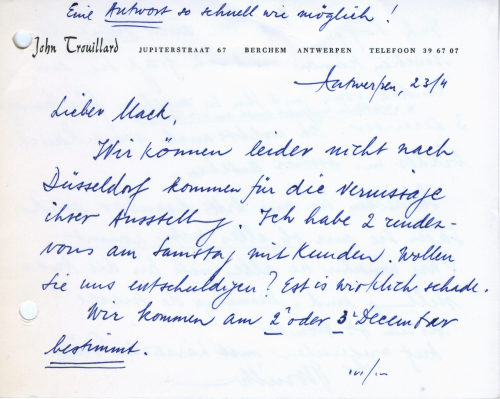 Eine Antwort so schnell wie möglich!
John Trouillard JUPITERSTRAAT 67 BERCHEM ANTWERPEN TELEFOON 39 67 07
Antwerpen, 23/4
Lieber Mack,
Wir können leider nicht nach
Düsseldorf kommen für die Vernissage
ihrer Ausstellung. Ich habe 2 rendez-
vous am Samstag mit Kunden. Wollen
Sie uns entschuldigen? Est is wirklich schade.
Wir kommen am 2e oder 3e December
bestimmt.